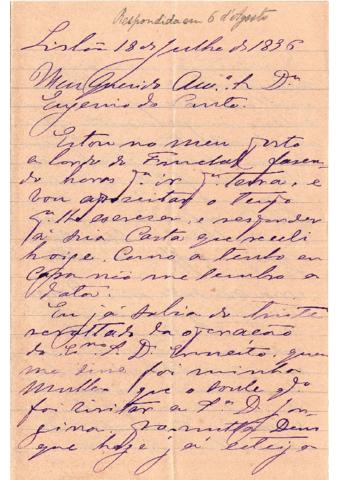 Respondida em 6 d'Agosto
Lisbôa 18 de Julho de 1896
Meu Querido Am.º Sr Dr
Eugenio do Canto.
Estou no meu posto
a bordo do Funchal fasen-
do horas p.ª ir p.ª terra, e
vou aproveitar o tempo
p.ª lhe escrever, e responder
á sua Carta que recebi
hoige. Como a tenho em
Casa não me lembro a
data.
Eu já sabia do triste
resultado da operação
do Ex.mo S. D. Ernesto, quem
me disse foi minha
Mulher que o soube q.do
foi visitar a S.ª D. Jor-
gina. Permitta Deus
que hoje já esteja